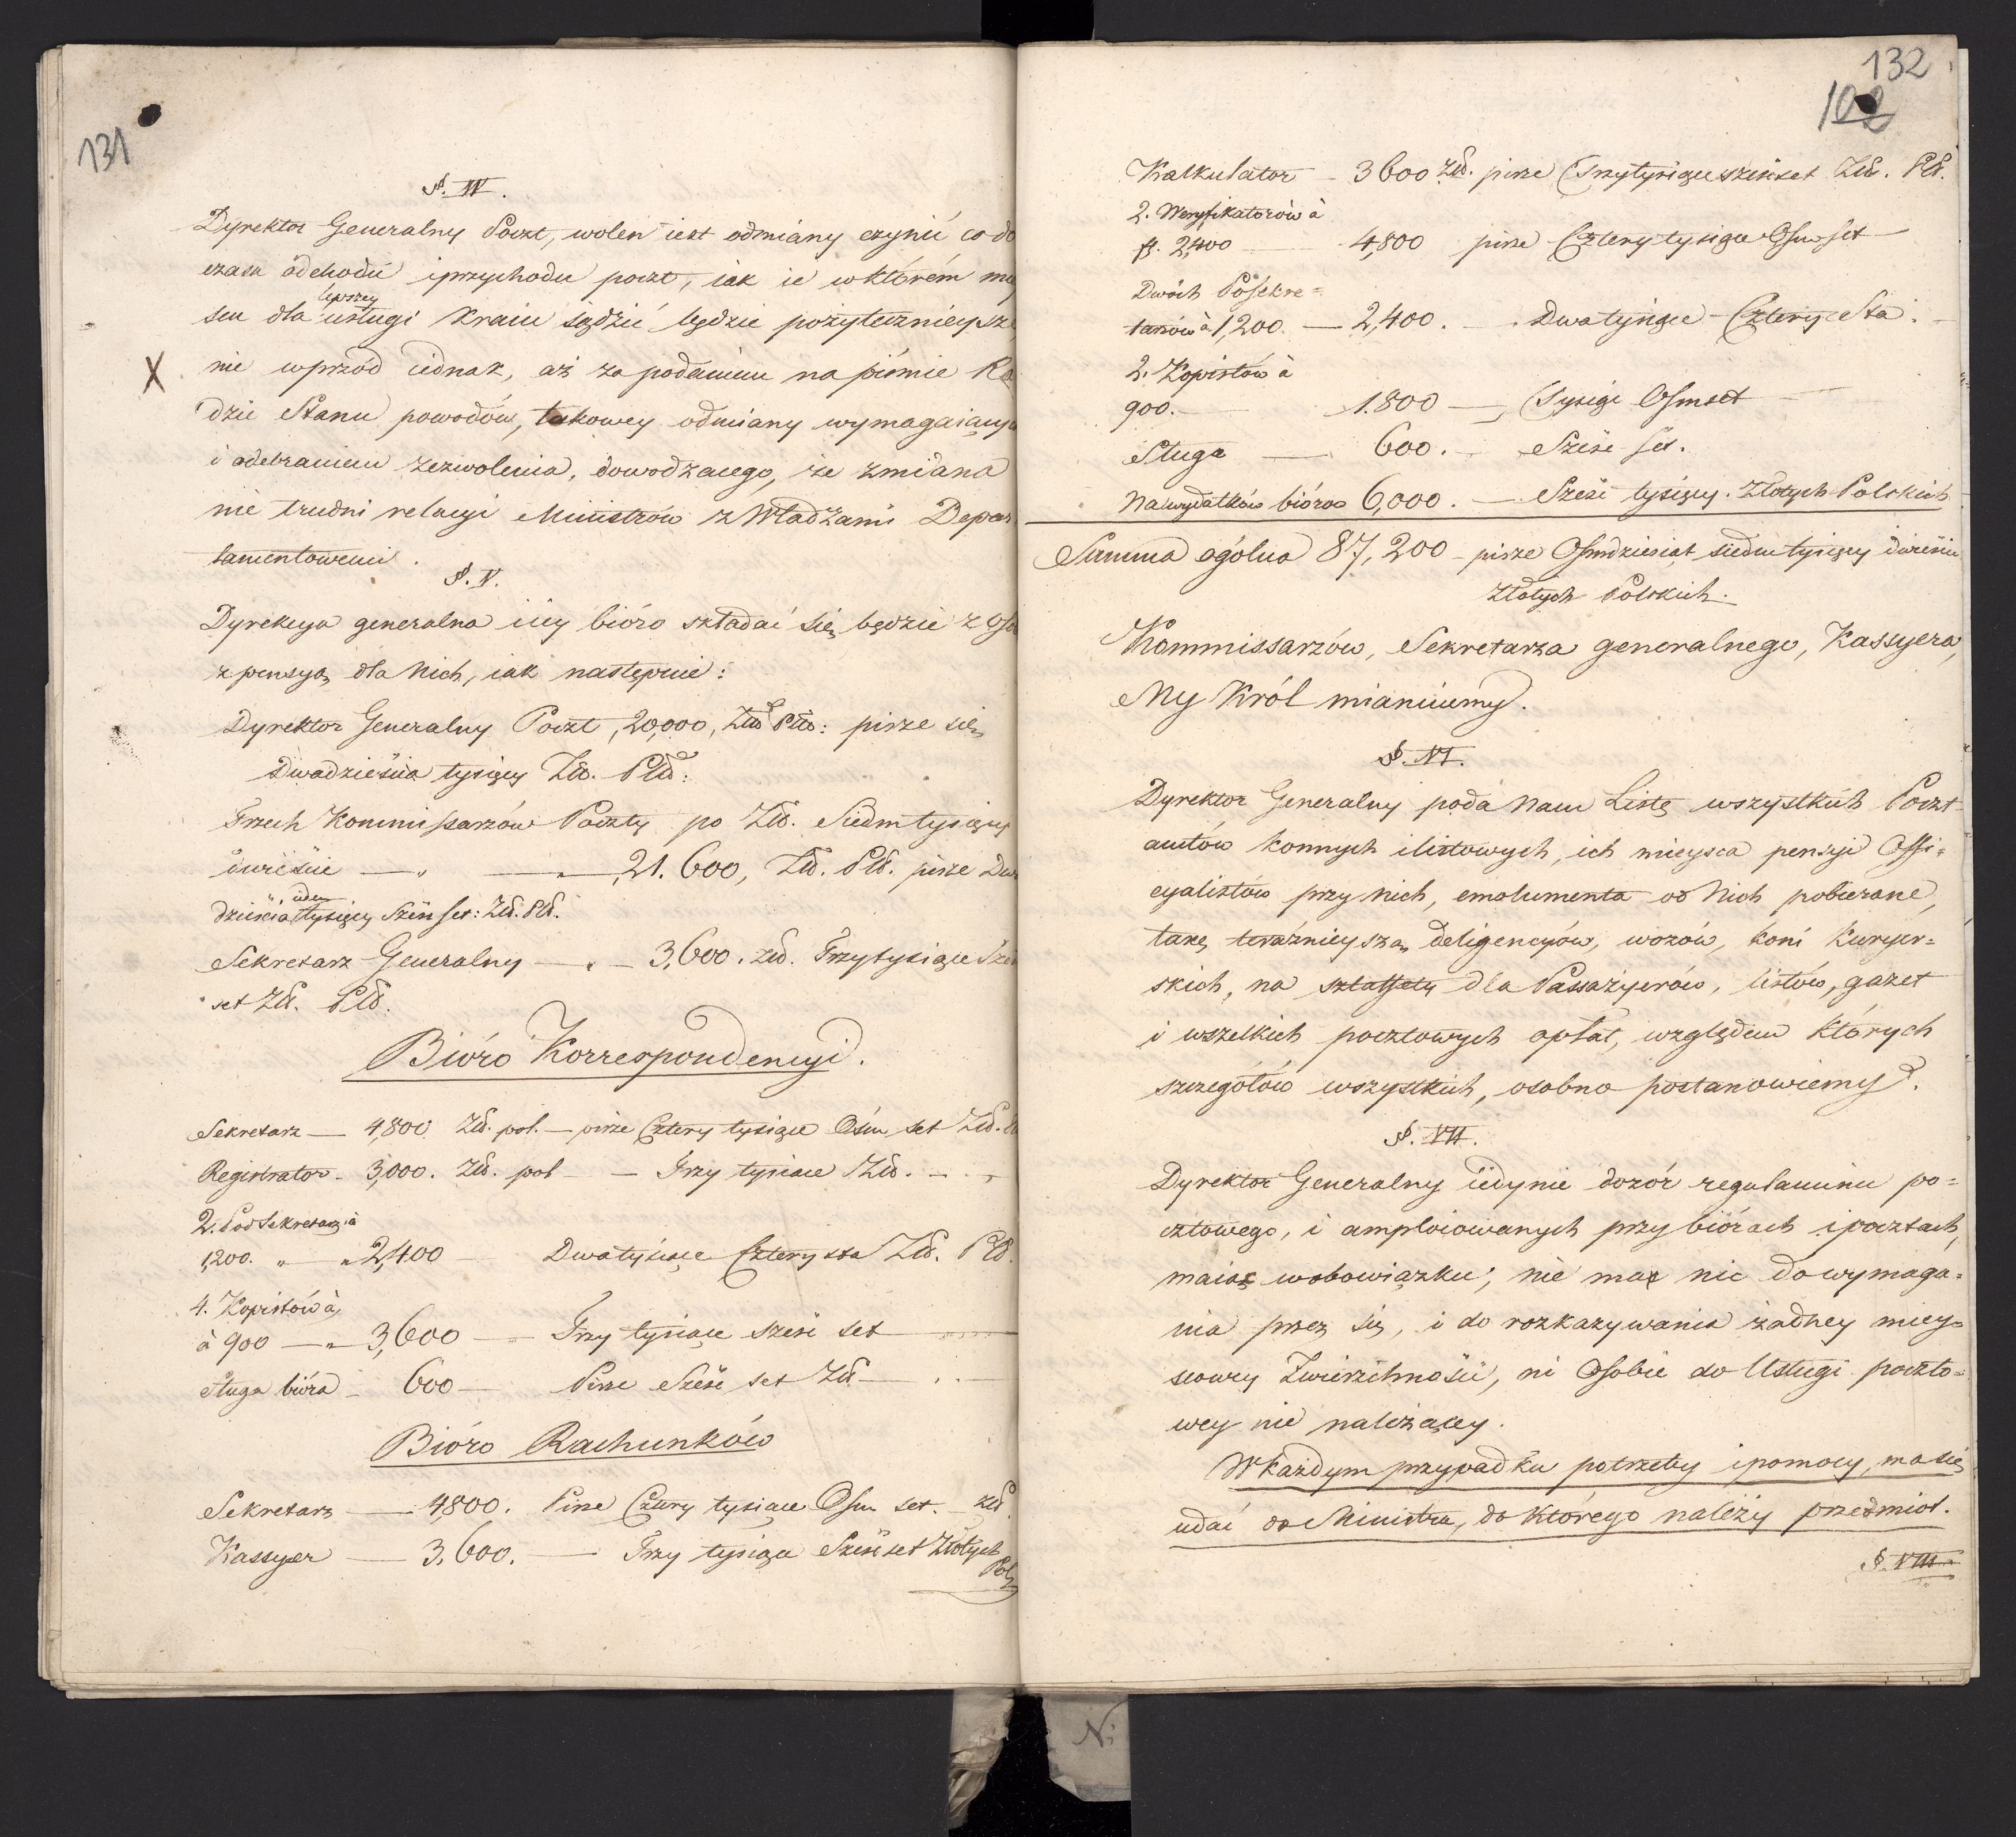 131
§. IV.
Dyrektor Generalny Poczt, wolen iest odmiany czynić co do
czasu odchodu i przychodu poczt, iak ie w którém mey
lepszey
scu dla usługi kraiu sądzić będzie pożytecznieysze
X nie wprzód iednak, aż za podaniem na piśmie Ra
dzie Stanu powodów, takowey odmiany wymagaiących
i odebraniem zezwolenia, dowodzącego, że zmiana
nie trudni relacyi Ministrów z Władzami Depar
tamentowemi.
§. V.
Dyrekcya generalna i iey bióro składać się będzie z Osó
z pensyą dla Nich, iak następuie:
Dyrektor Generalny Poczt, 20,000, Złł. Pld: pisze się
Dwadzieścia tysięcy Złd. Pld:
Trzech Kommissarzów Poczty po Złd. Siedm tysięcy
dwieście — " — " 21.600, Złd. Pld. pisze Dwa
ieden
dzieścia tysięcy Sześć set: Złd. Pld.
Sekretarz Generalny — " — 3,600. złd. Trzy tysiące Sześć
set Złd. Pld.
Bióro Korrespondencyi.
Sekretarz — 4,800 Złd. pol. — pisze Cztery tysiące Ośm set Złd.
Registrator - 3,000. Złd. pol — Trzy tysiące Złd. - . -
2. Podsekretarzy à
1,200. " — " 2,400 — Dwa tysiące Czterysta Złd. Pld.
4. Kopistów à
à 900 — " — 3,600 — Trzy tysiące sześć set
Sługa bióra — 600 — Pisze Sześć set Złd — . . —
Bióro Rachunków
Sekretarz — 4,800. Pisze Cztery tysiące Ośm set. — złd.
Kassyer — 3,600. — Trzy tysiące Sześć set Złotych
Pol.
132
102
Kalkulator — 3600 złd. pisze Trzy tysiące sześćset Złd. Pld.
2. Weryfikatorów à
fl. 2,400 — 4,800 pisze Cztery tysiące Ośm set —
Dwóch Posekre=
tarzów à 1,200. — 2,400. — . Dwa tysiące Czterysta . —
2. Kopistów à
900. — 1.800 — Tysiąc Ośmset —
Sługa — 600. — Sześć set.
Na wydatków bióra 6,000. — Sześć tysięcy. Złotych Polskich
Summa ogólna 87,200 - pisze Ośmdziesiąt siedm tysięcy dwieście
Złotych Polskich.
Kommissarzów, Sekretarza generalnego, Kassyera,
My Król mianuiemy.
§. VI.
Dyrektor Generalny poda Nam Listę wszystkich Poczt-
amtów konnych i listowych, ich mieysca pensyi Offi=
cyalistów przy nich, emolumenta od Nich pobierane,
taxę teraźnieyszą deligencyów, wozów, koni Kuryer=
skich, na sztaffety dla Passażyerów, listów, gazet
i wszelkich pocztowych opłat, względem których
szczegółów wszystkich, osobno postanowiemy.
§. VII.
Dyrektor Generalny iedynie dozór regulaminu po=
cztowego, i amploiowanych przy biórach i pocztach,
maiąc w obowiązku; nie ma nic do wymaga=
nia przez się, i do rozkazywania żadney miey=
scowey Zwierzchności, ni Osobie do Usługi poczto=
wey nie należącey.
W każdym przypadku potrzeby i pomocy, ma się
udać do Ministra, do którego należy przedmiot.
§. VIII.
N: